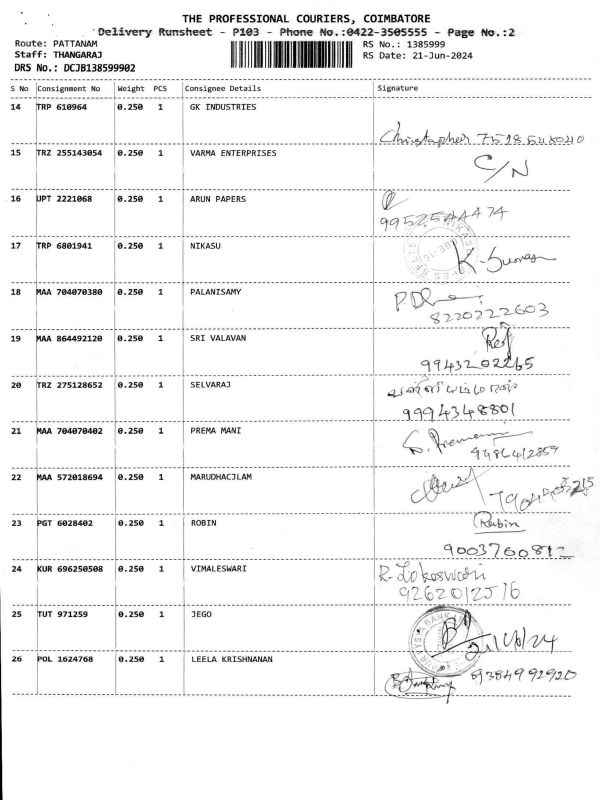 THE PROFESSIONAL COURIERS, COIMBATORE
Delivery Runsheet - P103 - Phone No.:0422-3505555 - Page No.:2
Route: PATTANAM
RS No.: 1385999
Staff: THANGARAJ
RS Date: 21-Jun-2024
DRS No.: DCJB138599902
S No Consignment No Weight PCS Consignee Details Signature
14 TRP 610964 0.250 1 GK INDUSTRIES
Christapher 7598548040
15 TRZ 255143054 0.250 1 VARMA ENTERPRISES
C/N
16 UPT 2221068 0.250 1 ARUN PAPERS
9952544474
17 TRP 6801941 0.250 1 NIKASU
18 MAA 704070380 0.250 1 PALANISAMY
8220222603
19 MAA 864492120 0.250 1 SRI VALAVAN
9943202265
20 TRZ 275128652 0.250 1 SELVARAJ
9994348801
21 MAA 704070402 0.250 1 PREMA MANI
9486412859
22 MAA 572018694 0.250 1 MARUDHACJLAM
23 PGT 6028402 0.250 1 ROBIN
Rubin
9003760812
24 KUR 696250508 0.250 1 VIMALESWARI
R. Lokeswari
9262012516
25 TUT 971259 0.250 1 JEGO
21/6/24
26 POL 1624768 0.250 1 LEELA KRISHNANAN
9384992920